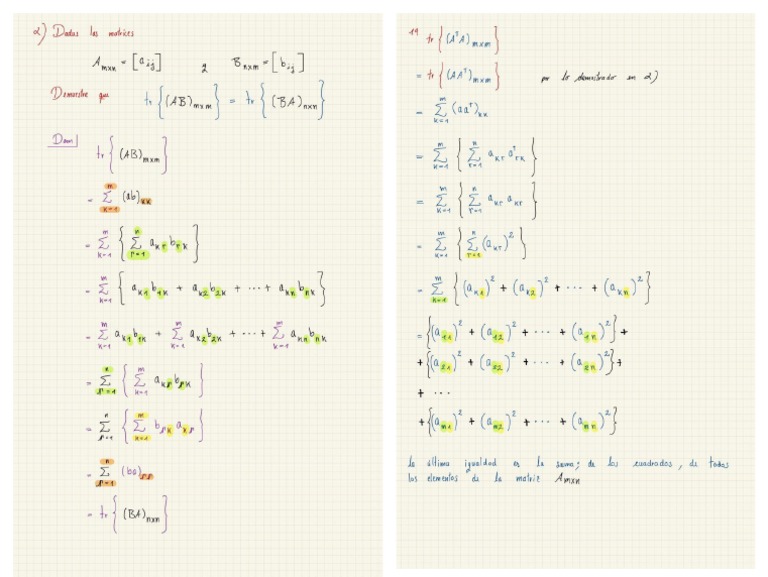 2) Dadas las matrices
A_{m×n} = [a_{ij}] y B_{n×m} = [b_{ij}]
Demuestre que tr{(AB)_{m×m}} = tr{(BA)_{n×n}}
Dem|
tr{(AB)_{m×m}}
= ∑_{k=1}^{m} (ab)_{kk}
= ∑_{k=1}^{m} {∑_{r=1}^{n} a_{kr} b_{rk}}
= ∑_{k=1}^{m} {a_{k1}b_{1k} + a_{k2}b_{2k} + ··· + a_{kn}b_{nk}}
= ∑_{k=1}^{m} a_{k1}b_{1k} + ∑_{k=1}^{m} a_{k2}b_{2k} + ··· + ∑_{k=1}^{m} a_{kn}b_{nk}
= ∑_{p=1}^{n} {∑_{k=1}^{m} a_{kp}b_{pk}}
= ∑_{p=1}^{n} {∑_{k=1}^{m} b_{pk} a_{kp}}
= ∑_{p=1}^{n} (ba)_{pp}
= tr{(BA)_{n×n}}
tr{(AᵀA)_{m×m}}
= tr{(AAᵀ)_{m×m}} por lo demostrado en 2)
= ∑_{k=1}^{m} (aaᵀ)_{kk}
= ∑_{k=1}^{m} {∑_{r=1}^{n} a_{kr} aᵀ_{rk}}
= ∑_{k=1}^{m} {∑_{r=1}^{n} a_{kr} a_{kr}}
= ∑_{k=1}^{m} {∑_{r=1}^{n} (a_{kr})²}
= ∑_{k=1}^{m} {(a_{k1})² + (a_{k2})² + ··· + (a_{kn})²}
= {(a_{11})² + (a_{12})² + ··· + (a_{1n})²} +
+ {(a_{21})² + (a_{22})² + ··· + (a_{2n})²} +
+ ···
+ {(a_{m1})² + (a_{m2})² + ··· + (a_{mn})²}
La última igualdad es la suma; de los cuadrados, de todos
los elementos de la matriz A_{m×n}